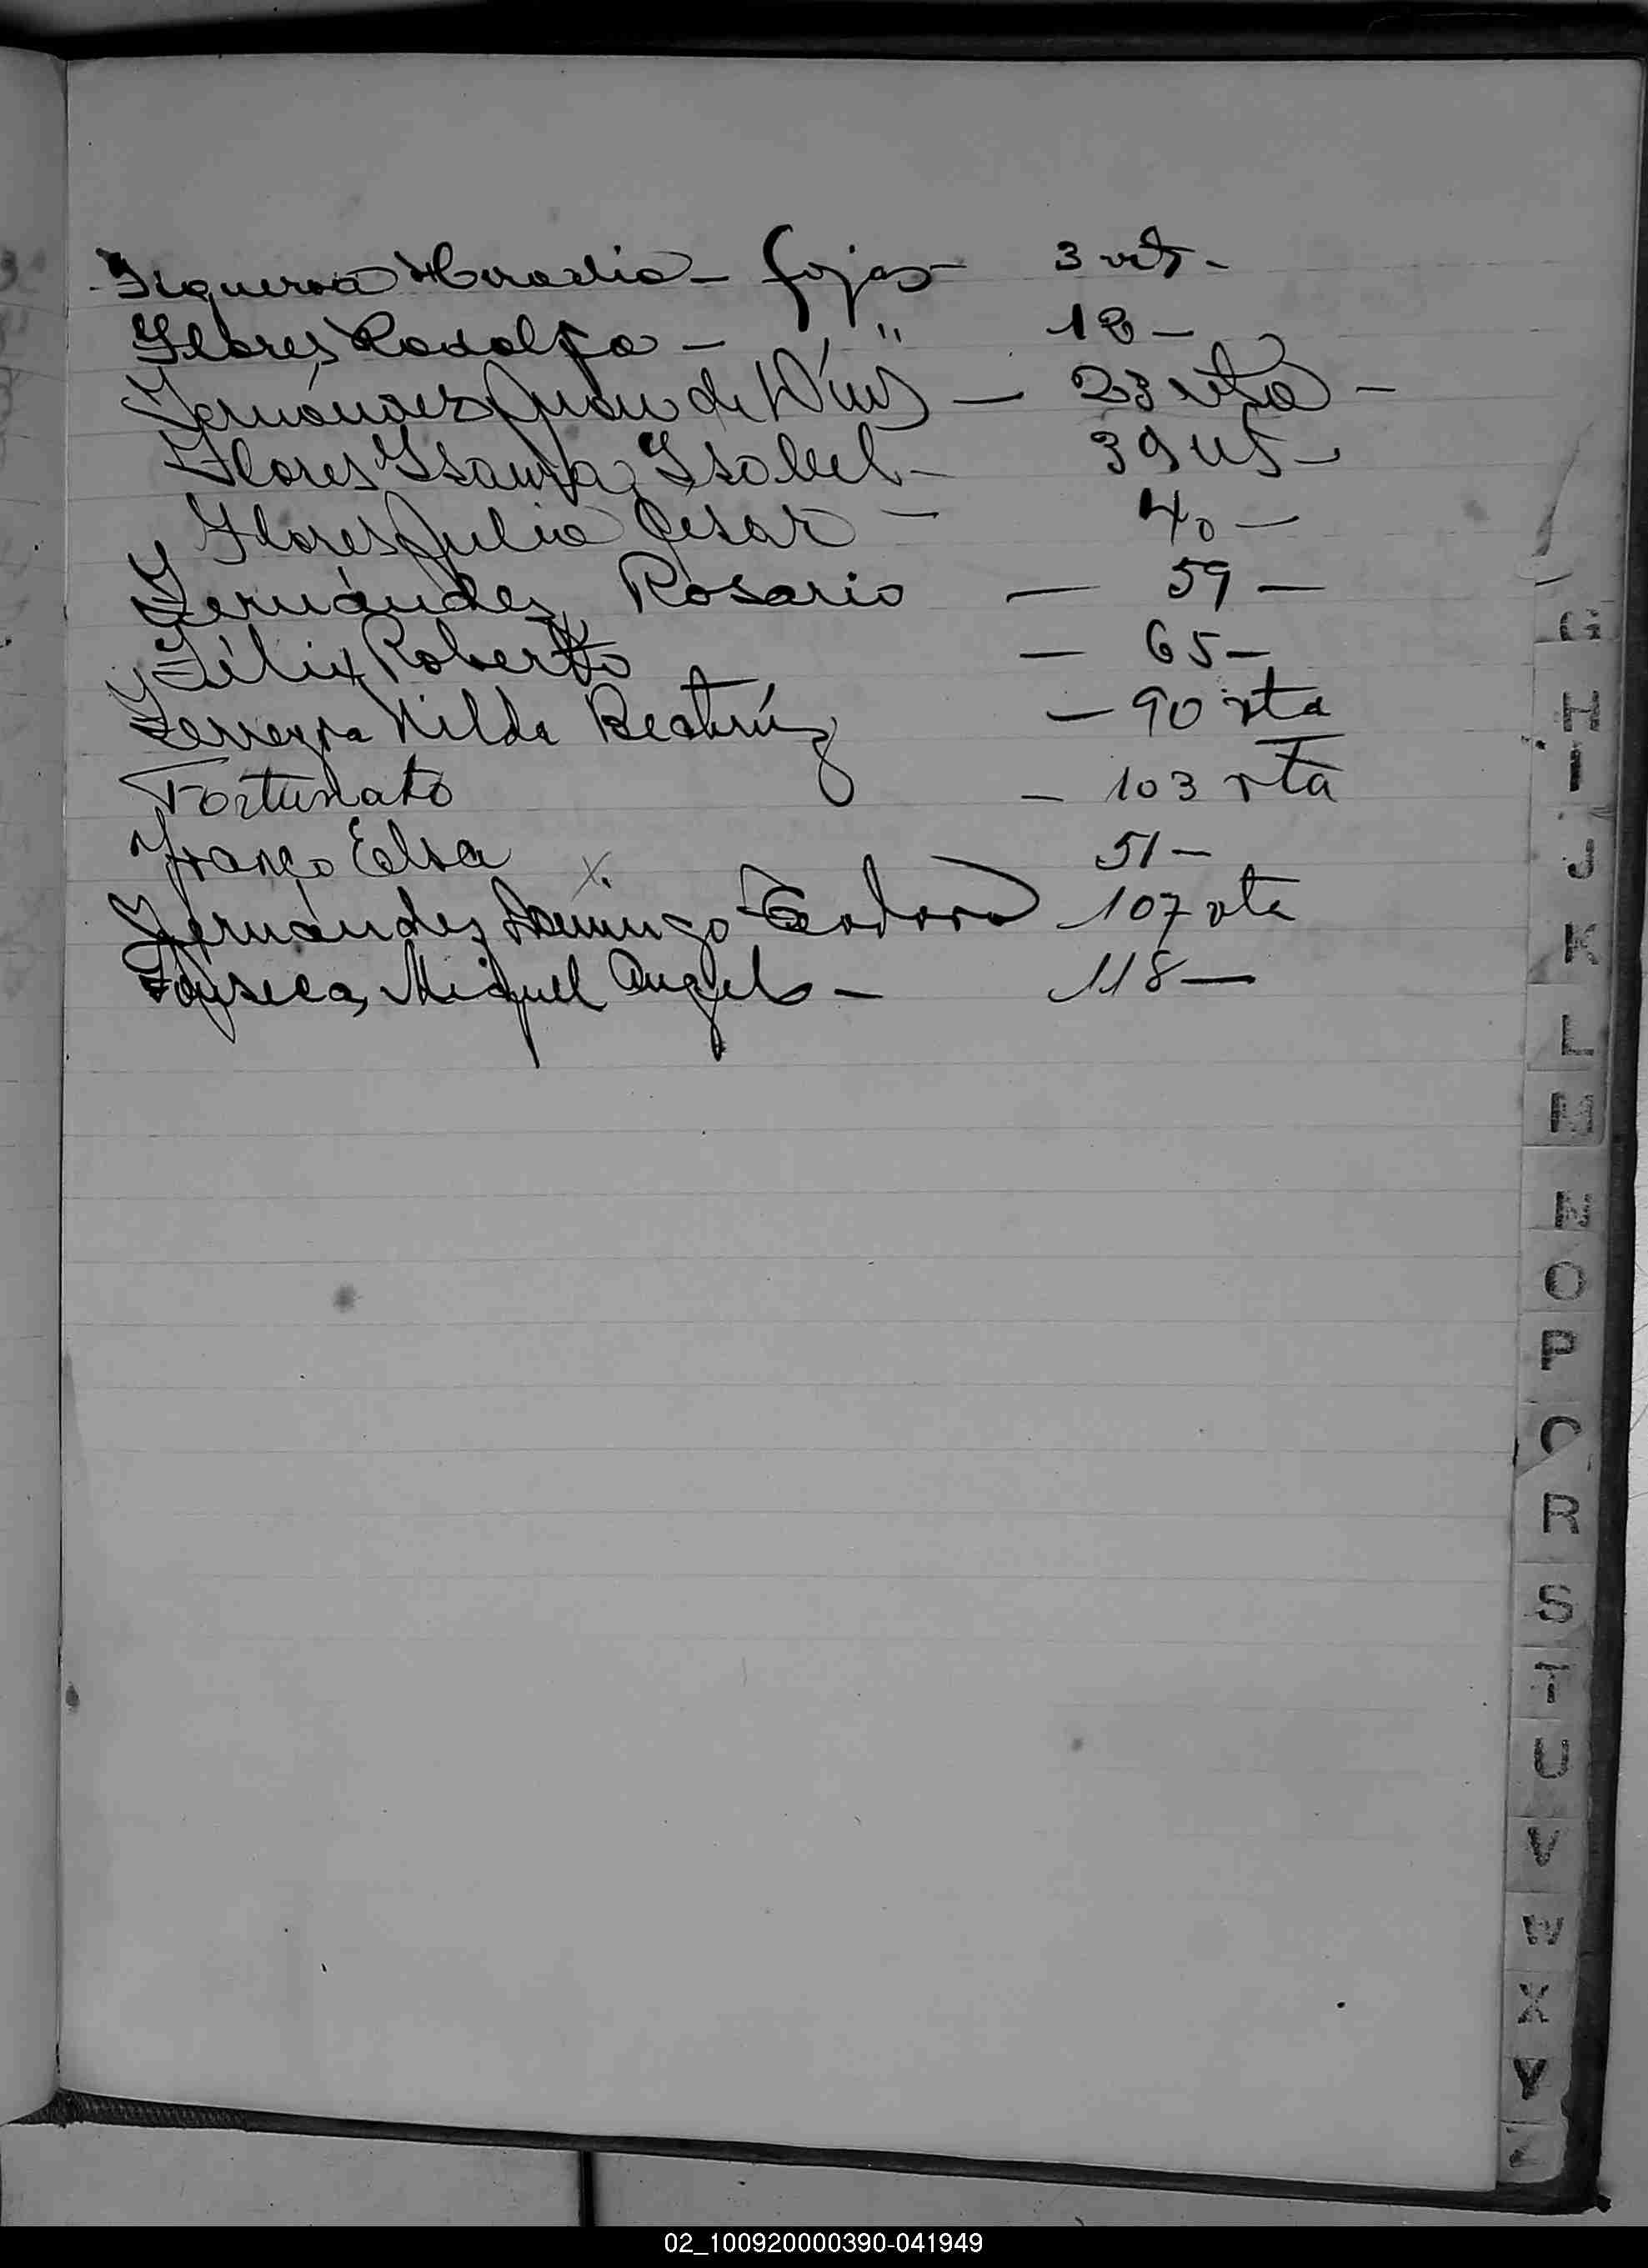 Figueroa Horacio - fojas - 3 vta -
Flores Rodolfo - " 12 -
Fernández Juan de Diós - 23 vta -
Flores Isaura Isabel - 39 vta -
Flores Julio Cesar - 40 -
Fernández, Rosario - 59 -
Félix Roberto - 65 -
Ferreyra Nilda Beatríz - 90 vta
Fortunato - 103 vta
Franco Elsa 51 -
X
Fernández, Domingo Teodoro 107 vta
Fonseca, Miguel Angel - 118 -
G
H
I
J
K
L
M
N
O
P
R
S
T
U
V
W
X
Y
02_100920000390-041949